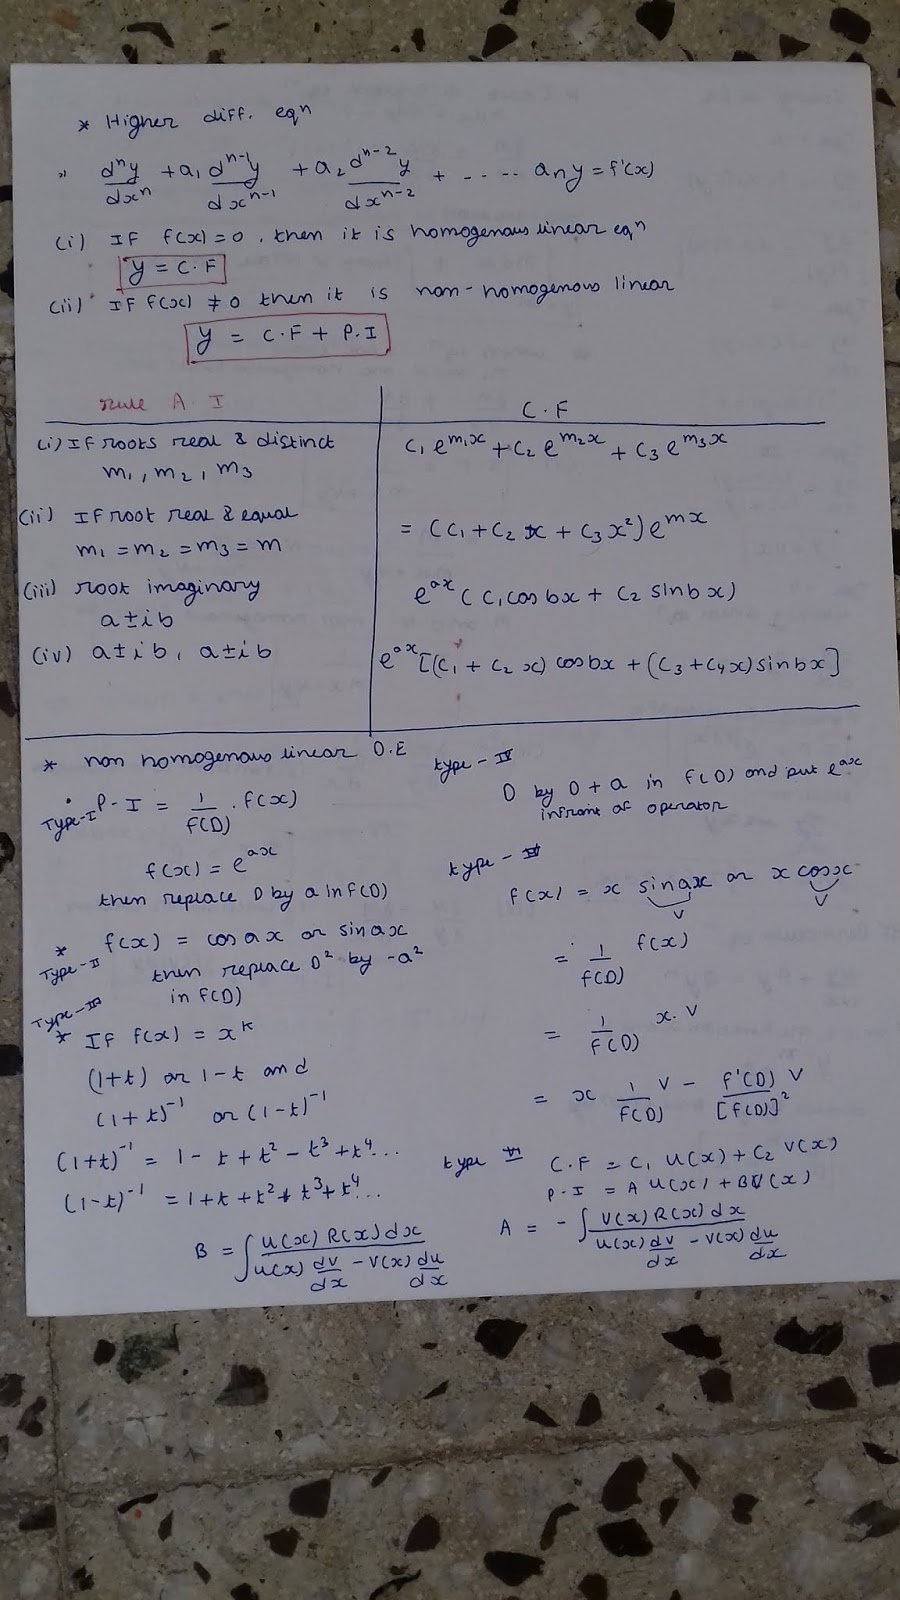 * Higher diff. eqn
" dⁿy/dxⁿ + a₁ dⁿ⁻¹y/dxⁿ⁻¹ + a₂ dⁿ⁻²y/dxⁿ⁻² + ..... aₙy = f'(x)
(i) If f(x) = 0, then it is homogenous linear eqn
y = C.F
(ii) If f(x) ≠ 0 then it is non-homogenous linear
y = C.F + P.I
rule A.I
C.F
(i) If roots real & distinct
m₁, m₂, m₃
C₁e^m₁x + C₂e^m₂x + C₃e^m₃x
(ii) If root real & equal
m₁ = m₂ = m₃ = m
= (C₁ + C₂x + C₃x²)e^mx
(iii) root imaginary
a ± ib
e^ax (C₁cosbx + C₂ sinbx)
(iv) a ± ib, a ± ib
e^ax [(C₁ + C₂x) cosbx + (C₃ + C₄x) sinbx]
* non homogenous linear D.E
Type-I P-I = 1/f(D) . f(x)
f(x) = e^ax
then replace D by a in f(D)
* f(x) = cosax or sinax
Type-II then replace D² by -a²
in f(D)
Type-III
* If f(x) = x^k
(1+t) or 1-t and
(1+t)⁻¹ or (1-t)⁻¹
(1+t)⁻¹ = 1 - t + t² - t³ + t⁴...
(1-t)⁻¹ = 1 + t + t² + t³ + t⁴...
type - IV
D by D + a in f(D) and put e^ax
infront of operator
type -
f(x) = x sinax or x cosx
V V
= 1/f(D) f(x)
= 1/f(D) x.V
= x 1/f(D) V - f'(D) V/[f(D)]²
type
C.F = C₁ u(x) + C₂ V(x)
P.I = A u(x) + B V(x)
B = ∫ u(x) R(x) dx / u(x) dv/dx - v(x) du/dx
A = - ∫ V(x) R(x) dx / u(x) dv/dx - v(x) du/dx